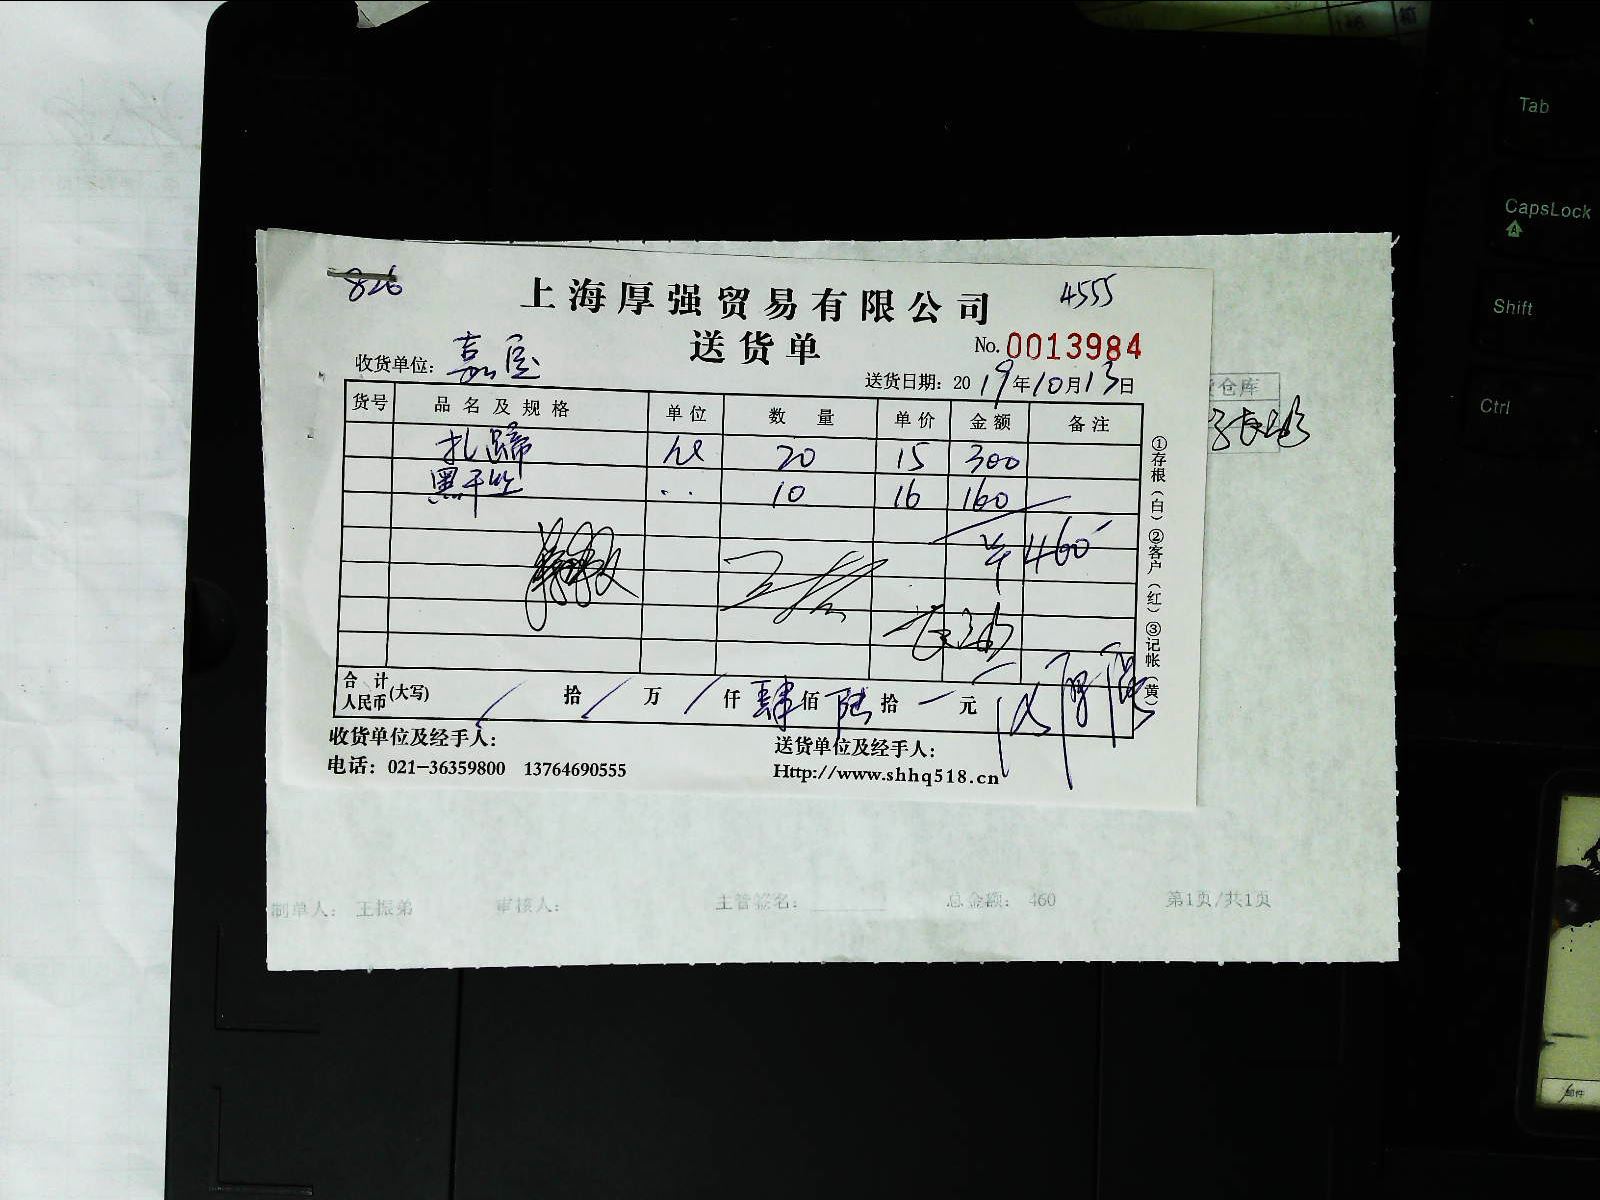 826
4555
上海厚强贸易有限公司
送货单
No. 0013984
收货单位：嘉
送货日期：2019年10月13日
货号 品名及规格 单位 数量 单价 金额 备注
扎蹄 20 15 300
黑干丝 10 16 160
460
合计人民币(大写) 拾 万 仟 肆 佰 陆 拾 元
收货单位及经手人：
送货单位及经手人：
电话：021-36359800 13764690555
Http://www.shhq518.cn
①存根(白)②客户(红)③记帐(黄)
仓库
制单人： 王振弟 审核人： 主管签名： 总金额： 460 第1页/共1页
Tab
CapsLock
Shift
Ctrl
邮件
箱